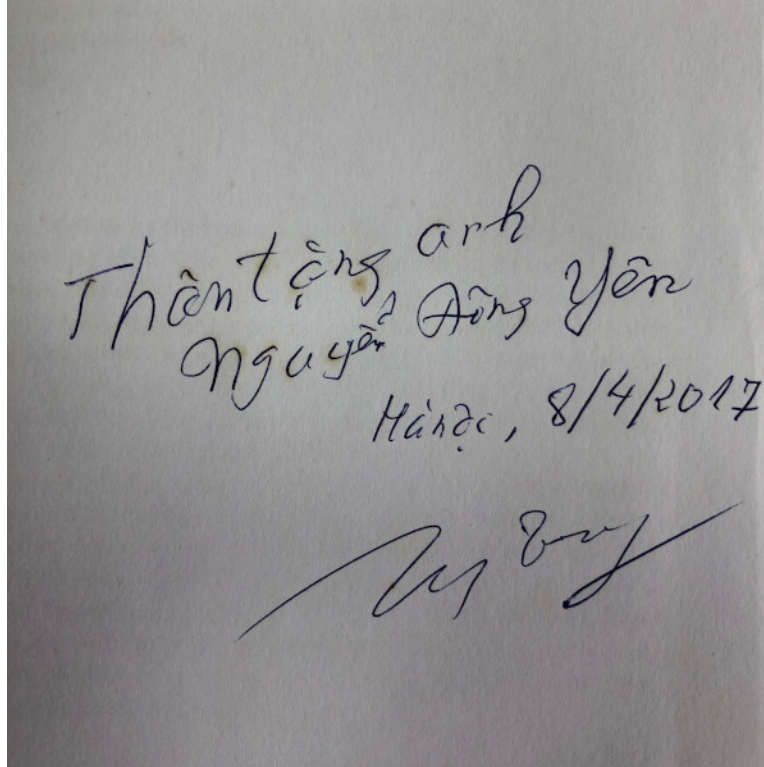 Thân tặng anh
Nguyễn Đông Yên
Hà nội, 8/4/2017